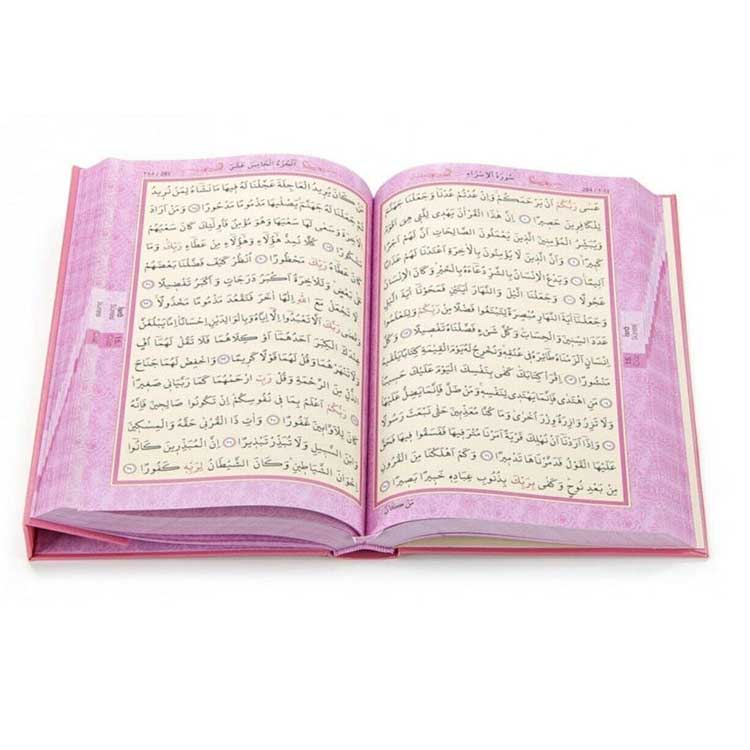 سُورَةُ الْاِسْرَاءِ
عَسٰى رَبُّكُمْ اَنْ يَرْحَمَكُمْ وَاِنْ عُدْتُمْ عُدْنَا وَجَعَلْنَا جَهَنَّمَ
لِلْكَافِرِينَ حَصِيرًا ۝ اِنَّ هٰذَا الْقُرْاٰنَ يَهْدِي لِلَّتِي هِيَ اَقْوَمُ
وَيُبَشِّرُ الْمُؤْمِنِينَ الَّذِينَ يَعْمَلُونَ الصَّالِحَاتِ اَنَّ لَهُمْ اَجْرًا
كَبِيرًا ۝ وَاَنَّ الَّذِينَ لَا يُؤْمِنُونَ بِالْاٰخِرَةِ اَعْتَدْنَا لَهُمْ عَذَابًا
اَلِيمًا ۝ وَيَدْعُ الْاِنْسَانُ بِالشَّرِّ دُعَاءَهُ بِالْخَيْرِ وَكَانَ الْاِنْسَانُ
عَجُولًا ۝ وَجَعَلْنَا الَّيْلَ وَالنَّهَارَ اٰيَتَيْنِ فَمَحَوْنَا اٰيَةَ الَّيْلِ
وَجَعَلْنَا اٰيَةَ النَّهَارِ مُبْصِرَةً لِتَبْتَغُوا فَضْلًا مِنْ رَبِّكُمْ وَلِتَعْلَمُوا
عَدَدَ السِّنِينَ وَالْحِسَابَ وَكُلَّ شَيْءٍ فَصَّلْنَاهُ تَفْصِيلًا ۝ وَكُلَّ
اِنْسَانٍ اَلْزَمْنَاهُ طَائِرَهُ فِي عُنُقِهِ وَنُخْرِجُ لَهُ يَوْمَ الْقِيٰمَةِ كِتَابًا يَلْقٰيهُ
مَنْشُورًا ۝ اِقْرَأْ كِتَابَكَ كَفٰى بِنَفْسِكَ الْيَوْمَ عَلَيْكَ حَسِيبًا
۝ مَنِ اهْتَدٰى فَاِنَّمَا يَهْتَدِي لِنَفْسِهِ وَمَنْ ضَلَّ فَاِنَّمَا يَضِلُّ عَلَيْهَا
وَلَا تَزِرُ وَازِرَةٌ وِزْرَ اُخْرٰى وَمَا كُنَّا مُعَذِّبِينَ حَتّٰى نَبْعَثَ رَسُولًا
۝ وَاِذَا اَرَدْنَا اَنْ نُهْلِكَ قَرْيَةً اَمَرْنَا مُتْرَفِيهَا فَفَسَقُوا فِيهَا فَحَقَّ
عَلَيْهَا الْقَوْلُ فَدَمَّرْنَاهَا تَدْمِيرًا ۝ وَكَمْ اَهْلَكْنَا مِنَ الْقُرُونِ
مِنْ بَعْدِ نُوحٍ وَكَفٰى بِرَبِّكَ بِذُنُوبِ عِبَادِهِ خَبِيرًا بَصِيرًا ۝
مَنْ كَانَ
اَلْجُزْءُ الْخَامِسَ عَشَرَ
مَنْ كَانَ يُرِيدُ الْعَاجِلَةَ عَجَّلْنَا لَهُ فِيهَا مَا نَشَاءُ لِمَنْ نُرِيدُ
ثُمَّ جَعَلْنَا لَهُ جَهَنَّمَ يَصْلٰيهَا مَذْمُومًا مَدْحُورًا ۝ وَمَنْ اَرَادَ
الْاٰخِرَةَ وَسَعٰى لَهَا سَعْيَهَا وَهُوَ مُؤْمِنٌ فَاُولٰئِكَ كَانَ سَعْيُهُمْ
مَشْكُورًا ۝ كُلًّا نُمِدُّ هٰؤُلَاءِ وَهٰؤُلَاءِ مِنْ عَطَاءِ رَبِّكَ وَمَا
كَانَ عَطَاءُ رَبِّكَ مَحْظُورًا ۝ اُنْظُرْ كَيْفَ فَضَّلْنَا بَعْضَهُمْ
عَلٰى بَعْضٍ وَلَلْاٰخِرَةُ اَكْبَرُ دَرَجَاتٍ وَاَكْبَرُ تَفْضِيلًا ۝
لَا تَجْعَلْ مَعَ اللّٰهِ اِلٰهًا اٰخَرَ فَتَقْعُدَ مَذْمُومًا مَخْذُولًا ۝
وَقَضٰى رَبُّكَ اَلَّا تَعْبُدُوا اِلَّا اِيَّاهُ وَبِالْوَالِدَيْنِ اِحْسَانًا اِمَّا يَبْلُغَنَّ
عِنْدَكَ الْكِبَرَ اَحَدُهُمَا اَوْ كِلَاهُمَا فَلَا تَقُلْ لَهُمَا اُفٍّ
وَلَا تَنْهَرْهُمَا وَقُلْ لَهُمَا قَوْلًا كَرِيمًا ۝ وَاخْفِضْ لَهُمَا جَنَاحَ
الذُّلِّ مِنَ الرَّحْمَةِ وَقُلْ رَبِّ ارْحَمْهُمَا كَمَا رَبَّيَانِي صَغِيرًا
۝ رَبُّكُمْ اَعْلَمُ بِمَا فِي نُفُوسِكُمْ اِنْ تَكُونُوا صَالِحِينَ فَاِنَّهُ
كَانَ لِلْاَوَّابِينَ غَفُورًا ۝ وَاٰتِ ذَا الْقُرْبٰى حَقَّهُ وَالْمِسْكِينَ
وَابْنَ السَّبِيلِ وَلَا تُبَذِّرْ تَبْذِيرًا ۝ اِنَّ الْمُبَذِّرِينَ كَانُوا
اِخْوَانَ الشَّيَاطِينِ وَكَانَ الشَّيْطَانُ لِرَبِّهِ كَفُورًا ۝